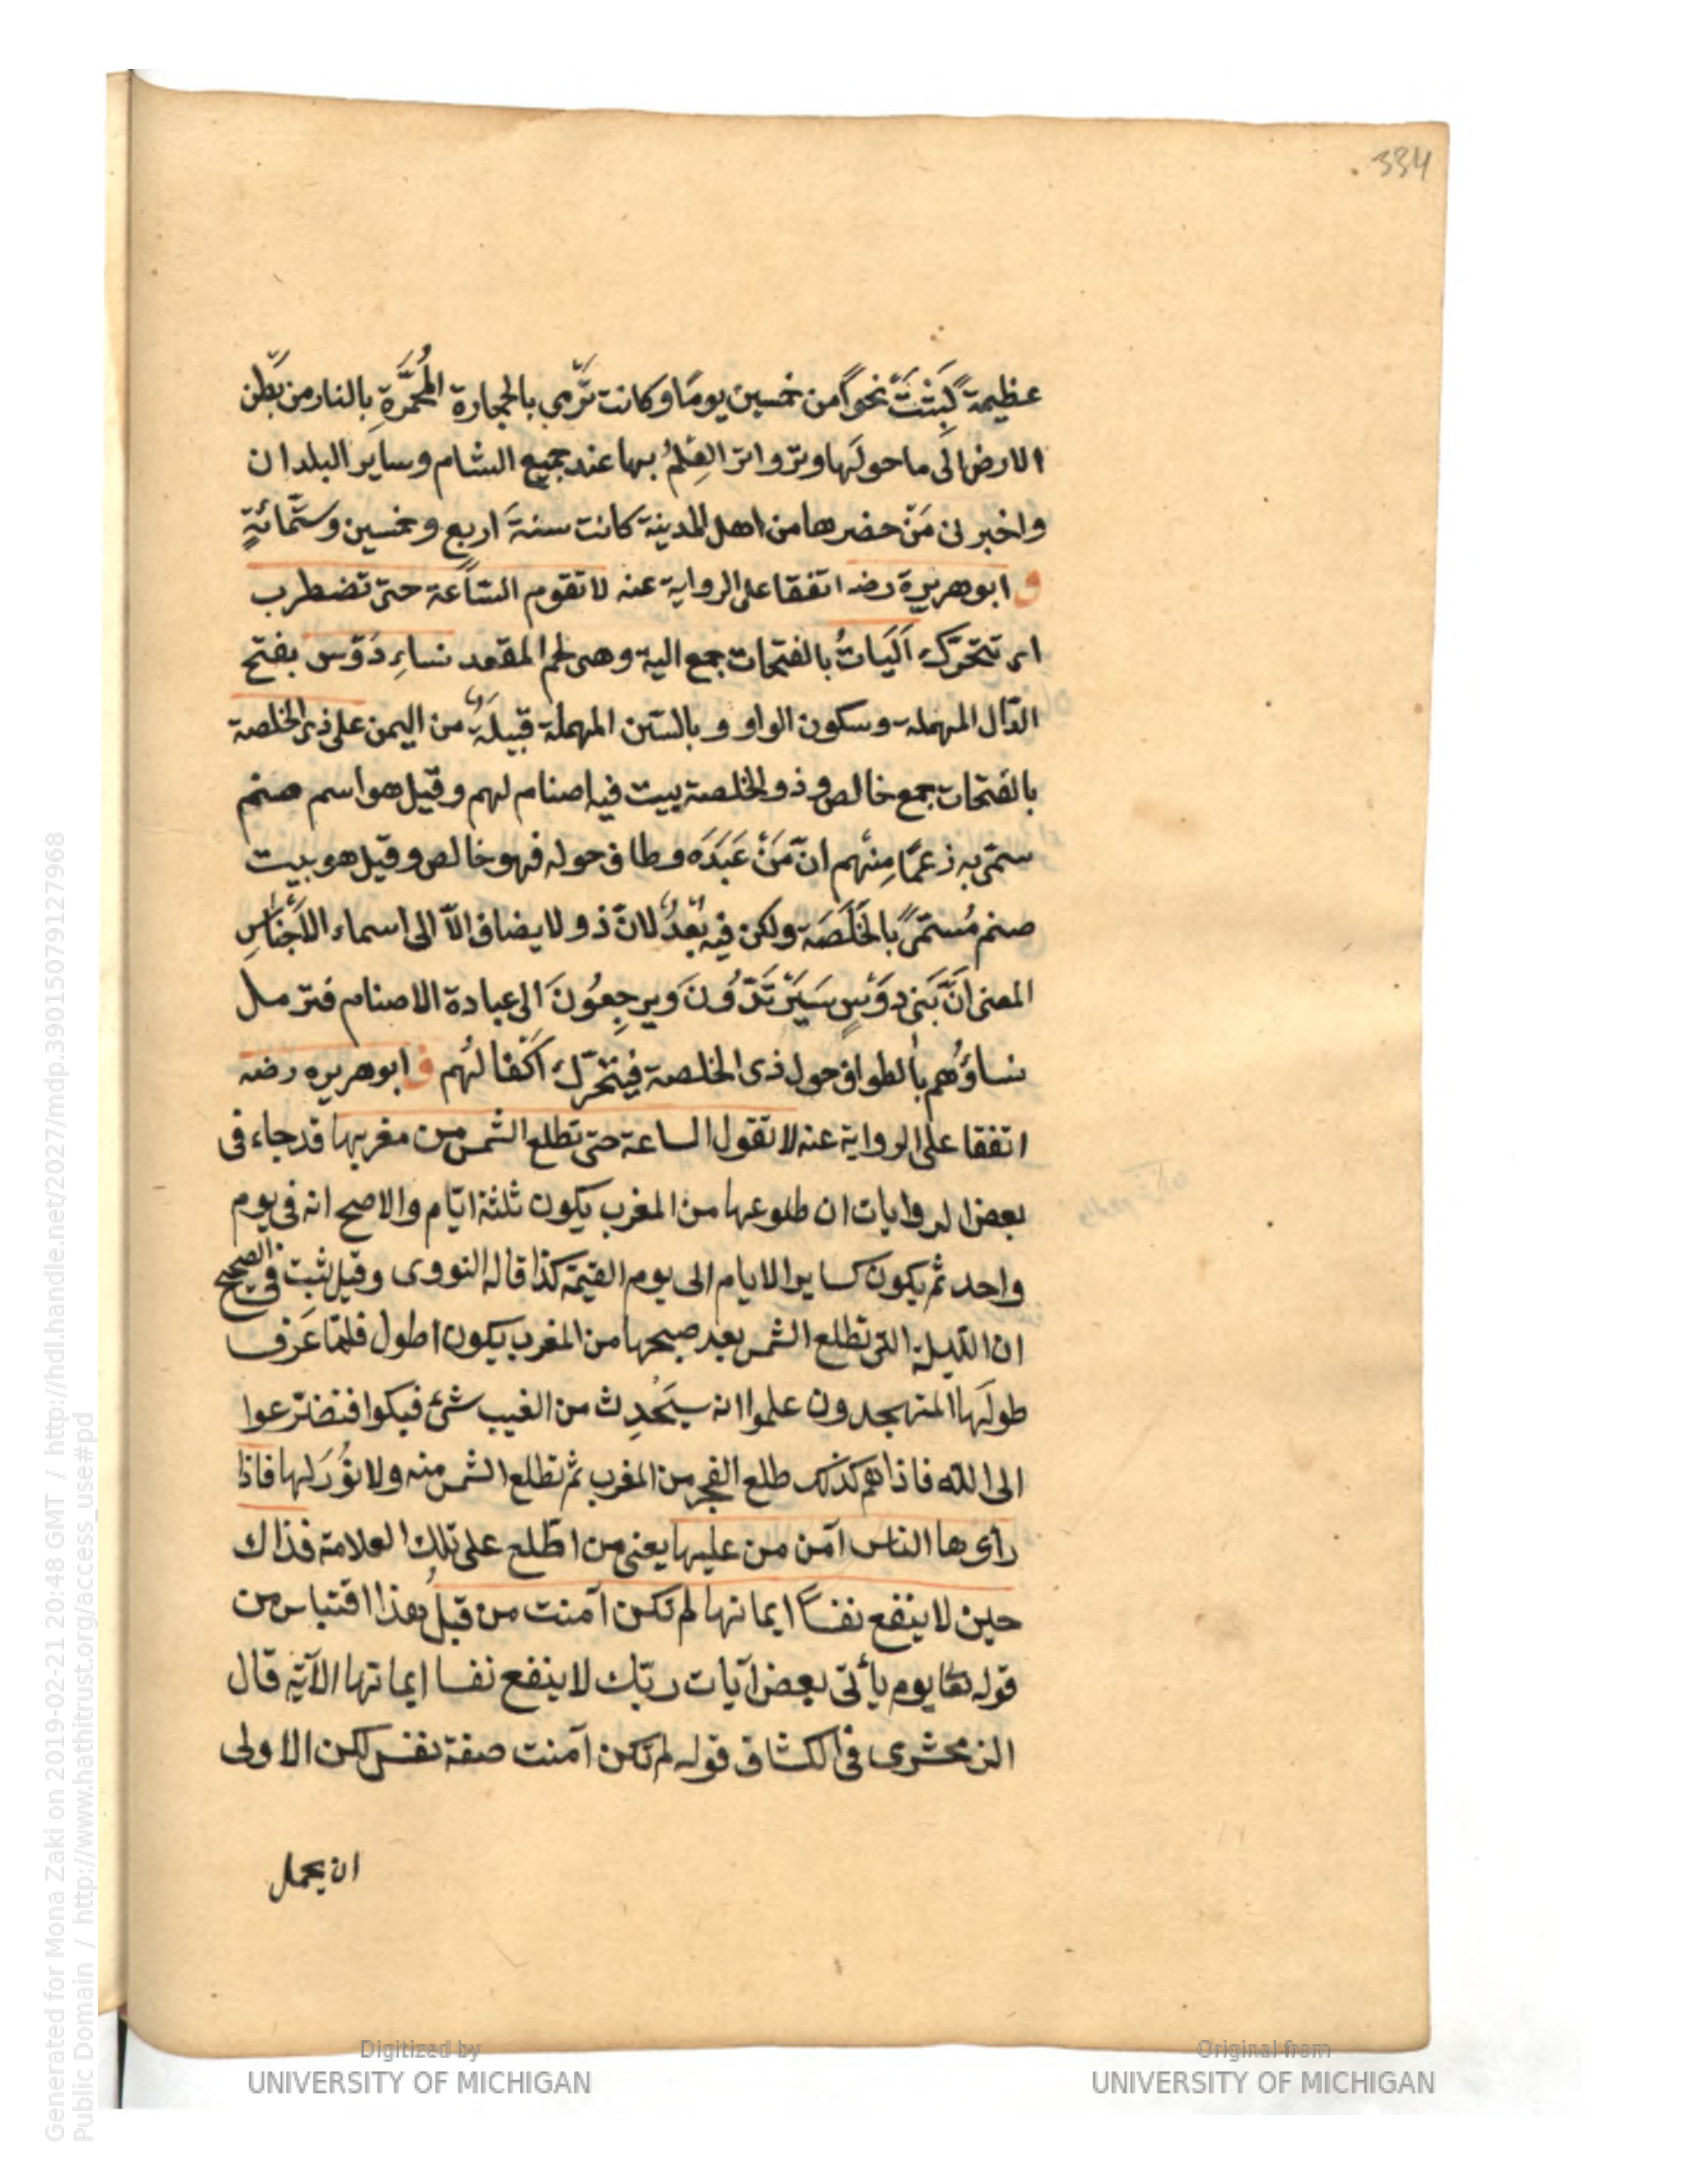 334
عظيمة لبثت نحوا من خمسين يوما وكانت ترمي بالحجارة المحمرة بالنار من بطن
الارض الى ما حولها وتواتر العلم بها عند جميع الشام وساير البلدان
واخبرنى من حضرها من اهل المدينة كانت سنة اربع وخمسين وستمائة
ق ابو هريرة رضه اتفقا على الرواية عنه لا تقوم الساعة حتى تضطرب
اى تتحرك اليات بالفتحات جمع الية وهى لحم المقعد نساء دوس بفتح
الدال المهملة وسكون الواو وبالسين المهملة قبيلة من اليمن على ذى الخلصة
بالفتحات جمع خالص وذو الخلصة بيت فيه اصنام لهم وقيل هو اسم صنم
سمى به زعما منهم ان من عبده وطاف حوله فهو خالص وقيل هو بيت
صنم مسمى بالخلصة ولكن فيه بعد لان ذو لا يضاف الا الى اسماء الاجناس
المعنى ان بنى دوس سيرتدون ويرجعون الى عبادة الاصنام فترمل
نساؤهم بالطواف حول ذى الخلصة فيتحرك اكفالهم ق ابو هريره رضه
اتفقا على الرواية عنه لا تقول الساعة حتى تطلع الشمس من مغربها قد جاء فى
بعض الروايات ان طلوعها من المغرب يكون ثلثة ايام والاصح انه فى يوم
واحد ثم يكون كساير الايام الى يوم القيمة كذا قاله النووى وقيل ثبت فى الصحيح
ان الليلة التى تطلع الشمس بعد صبحها من المغرب يكون اطول فلما عرف
طولها المتهجدون علموا انه سيحدث من الغيب شئ فبكوا فتضرعوا
الى الله فاذا هم كذلك طلع الفجر من المغرب ثم تطلع الشمس منه ولا نور لها فاذا
رأى ها الناس آمن من عليها يعنى من اطلع على تلك العلامة فذاك
حين لا ينفع نفسا ايمانها لم تكن آمنت من قبل هذا اقتباس من
قوله تعا يوم يأتى بعض آيات ربك لا ينفع نفسا ايمانها الآية قال
الزمخشرى فى الكشاف قوله لم تكن آمنت صفة نفس لكن الاولى
ان يحمل
Generated for Mona Zaki on 2019-02-21 20:48 GMT / http://hdl.handle.net/2027/mdp.39015079127968
Public Domain / http://www.hathitrust.org/access_use#pd
Digitized by
UNIVERSITY OF MICHIGAN
Original from
UNIVERSITY OF MICHIGAN